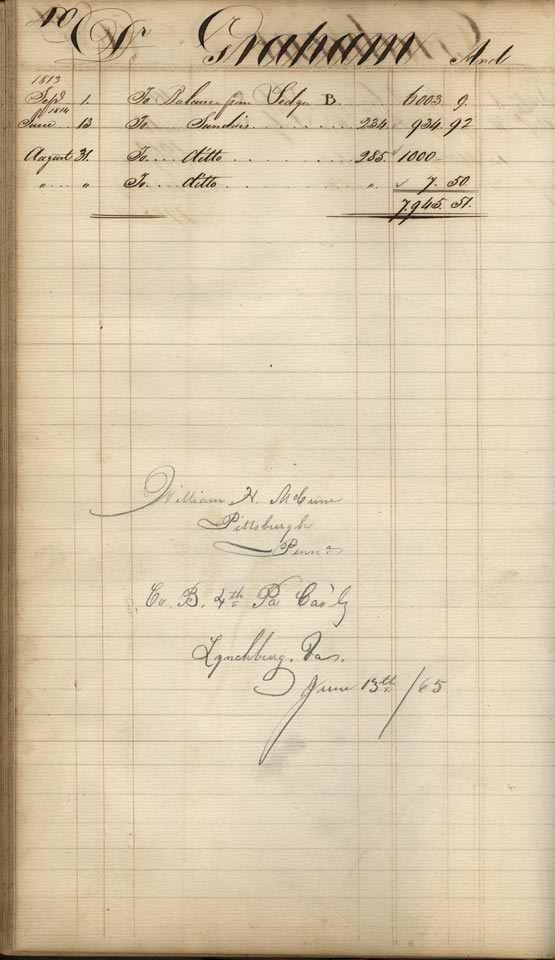 40 Dr Graham And
1813
Sepr 1. To Balance from Ledger B. 6003. 9.
1814
June 13 To Sundries 234 934 92
August 31. To ditto 285. 1000
" " To ditto " 7. 50.
7,945. 51.
William H. McCune
Pittsburgh
Penna
Co. B. 4th Pa Cav'ly
Lynchburg. Va.
June 13th /65